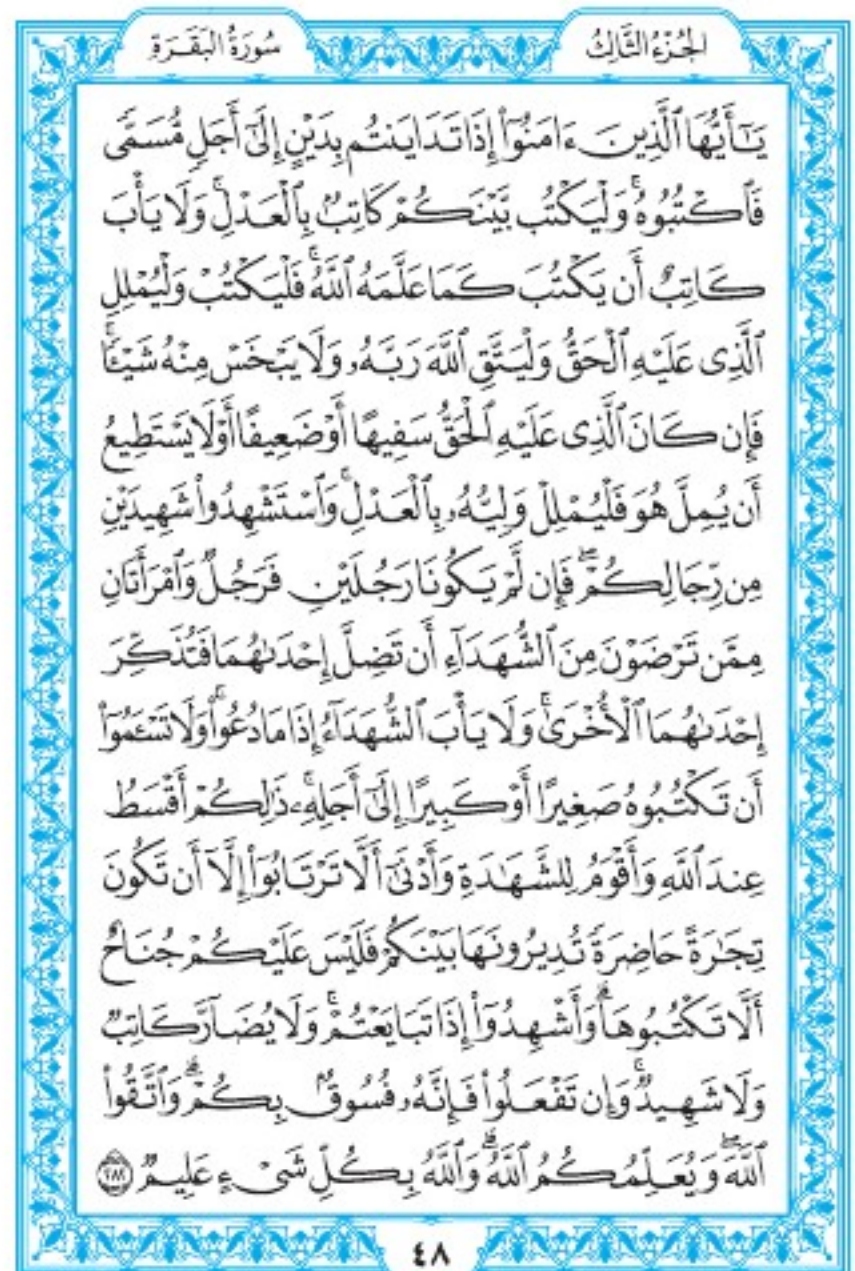 سُورَةُ البَقَرَةِ
الجُزْءُ الثَّالِثُ
يَـٰٓأَيُّهَا ٱلَّذِينَ ءَامَنُوٓا۟ إِذَا تَدَايَنتُم بِدَيْنٍ إِلَىٰٓ أَجَلٍ مُّسَمًّى
فَٱكْتُبُوهُ ۚ وَلْيَكْتُب بَّيْنَكُمْ كَاتِبٌۢ بِٱلْعَدْلِ ۚ وَلَا يَأْبَ
كَاتِبٌ أَن يَكْتُبَ كَمَا عَلَّمَهُ ٱللَّهُ ۚ فَلْيَكْتُبْ وَلْيُمْلِلِ
ٱلَّذِى عَلَيْهِ ٱلْحَقُّ وَلْيَتَّقِ ٱللَّهَ رَبَّهُۥ وَلَا يَبْخَسْ مِنْهُ شَيْـًٔا ۚ
فَإِن كَانَ ٱلَّذِى عَلَيْهِ ٱلْحَقُّ سَفِيهًا أَوْ ضَعِيفًا أَوْ لَا يَسْتَطِيعُ
أَن يُمِلَّ هُوَ فَلْيُمْلِلْ وَلِيُّهُۥ بِٱلْعَدْلِ ۚ وَٱسْتَشْهِدُوا۟ شَهِيدَيْنِ
مِن رِّجَالِكُمْ ۖ فَإِن لَّمْ يَكُونَا رَجُلَيْنِ فَرَجُلٌ وَٱمْرَأَتَانِ
مِمَّن تَرْضَوْنَ مِنَ ٱلشُّهَدَآءِ أَن تَضِلَّ إِحْدَىٰهُمَا فَتُذَكِّرَ
إِحْدَىٰهُمَا ٱلْأُخْرَىٰ ۚ وَلَا يَأْبَ ٱلشُّهَدَآءُ إِذَا مَا دُعُوا۟ ۚ وَلَا تَسْـَٔمُوٓا۟
أَن تَكْتُبُوهُ صَغِيرًا أَوْ كَبِيرًا إِلَىٰٓ أَجَلِهِۦ ۚ ذَٰلِكُمْ أَقْسَطُ
عِندَ ٱللَّهِ وَأَقْوَمُ لِلشَّهَـٰدَةِ وَأَدْنَىٰٓ أَلَّا تَرْتَابُوٓا۟ ۖ إِلَّآ أَن تَكُونَ
تِجَـٰرَةً حَاضِرَةً تُدِيرُونَهَا بَيْنَكُمْ فَلَيْسَ عَلَيْكُمْ جُنَاحٌ
أَلَّا تَكْتُبُوهَا ۗ وَأَشْهِدُوٓا۟ إِذَا تَبَايَعْتُمْ ۚ وَلَا يُضَآرَّ كَاتِبٌ
وَلَا شَهِيدٌ ۚ وَإِن تَفْعَلُوا۟ فَإِنَّهُۥ فُسُوقٌۢ بِكُمْ ۗ وَٱتَّقُوا۟
ٱللَّهَ ۖ وَيُعَلِّمُكُمُ ٱللَّهُ ۗ وَٱللَّهُ بِكُلِّ شَىْءٍ عَلِيمٌ ٢٨٢
٤٨